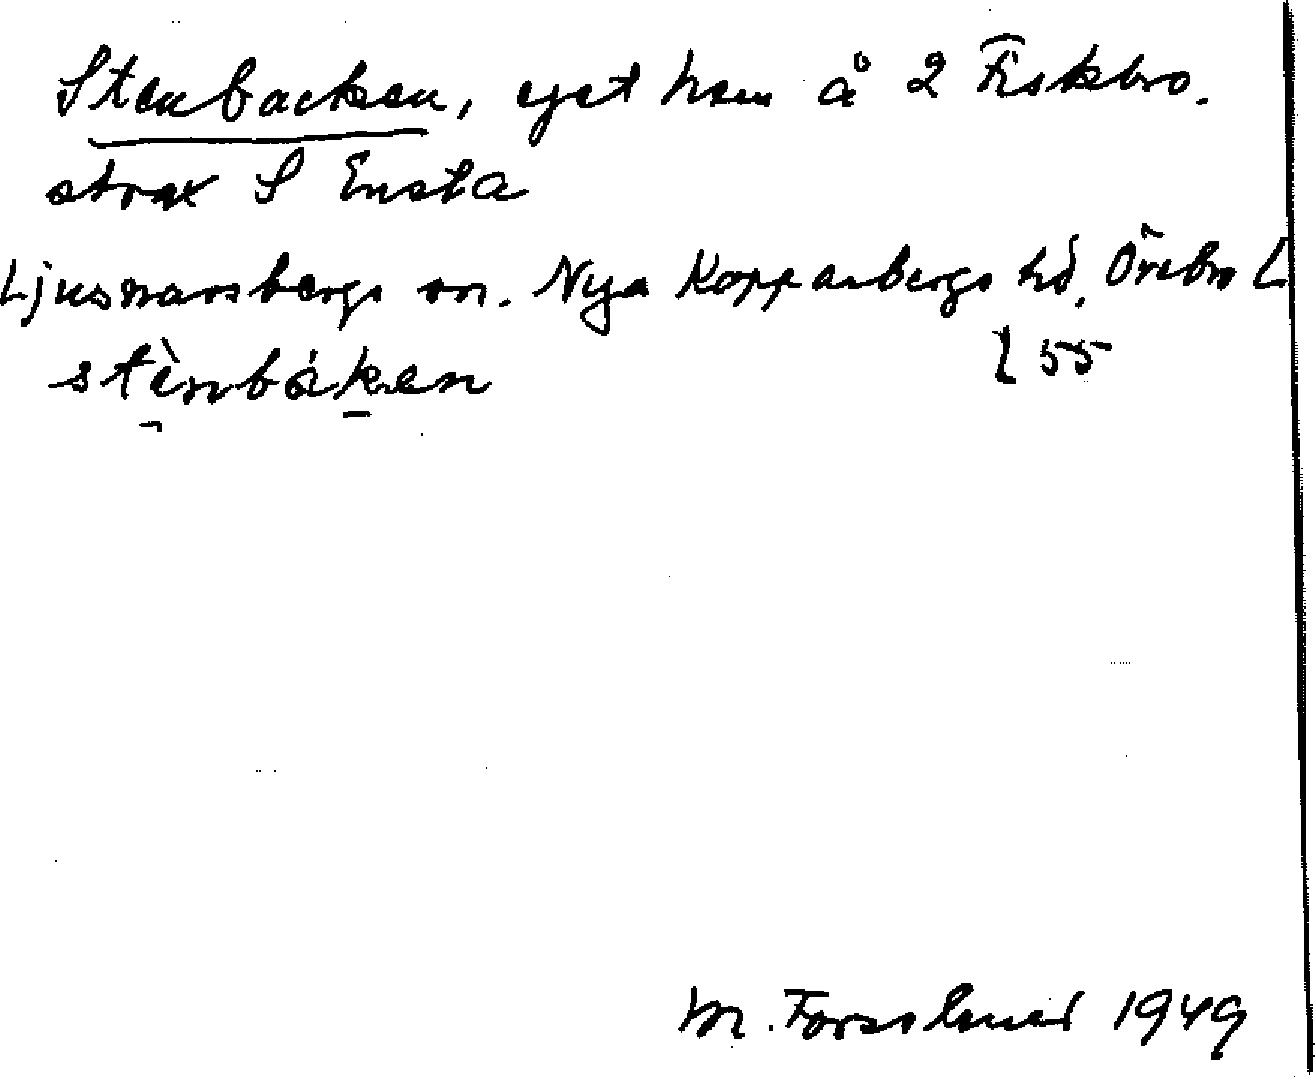 Stenbacken, eget hem å 2 Fiskbro.
strax S Ensta
Ljusnarsbergs sn. Nya Kopparbergs hd, Örebro L
stènbáken
l 55
M. Forsslund 1949